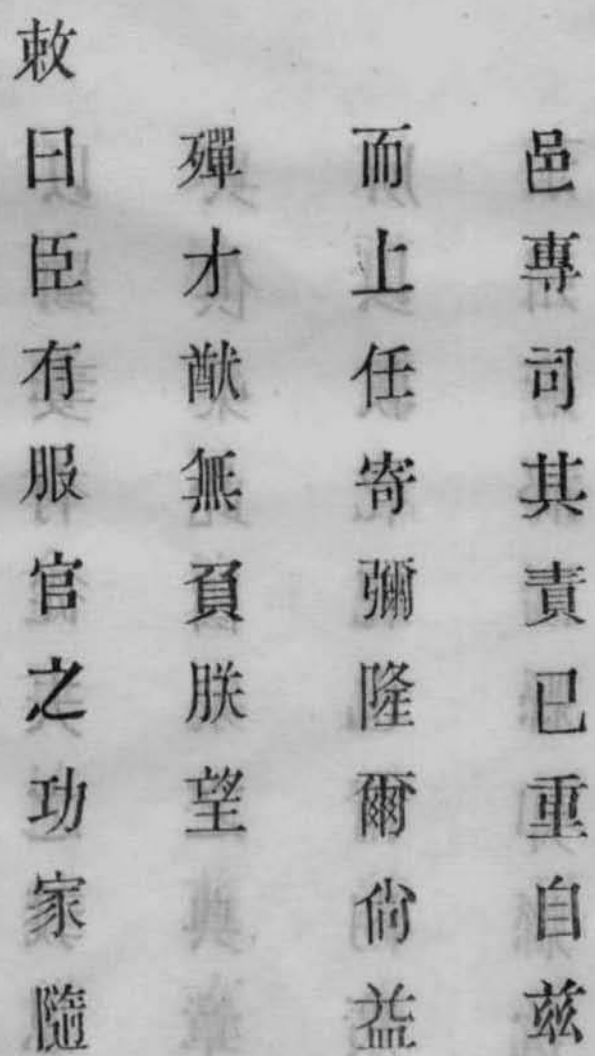 邑專司其責已重自茲
而上任寄彌隆爾尙益
殫才猷無負朕望
敕
曰臣有服官之功家隨